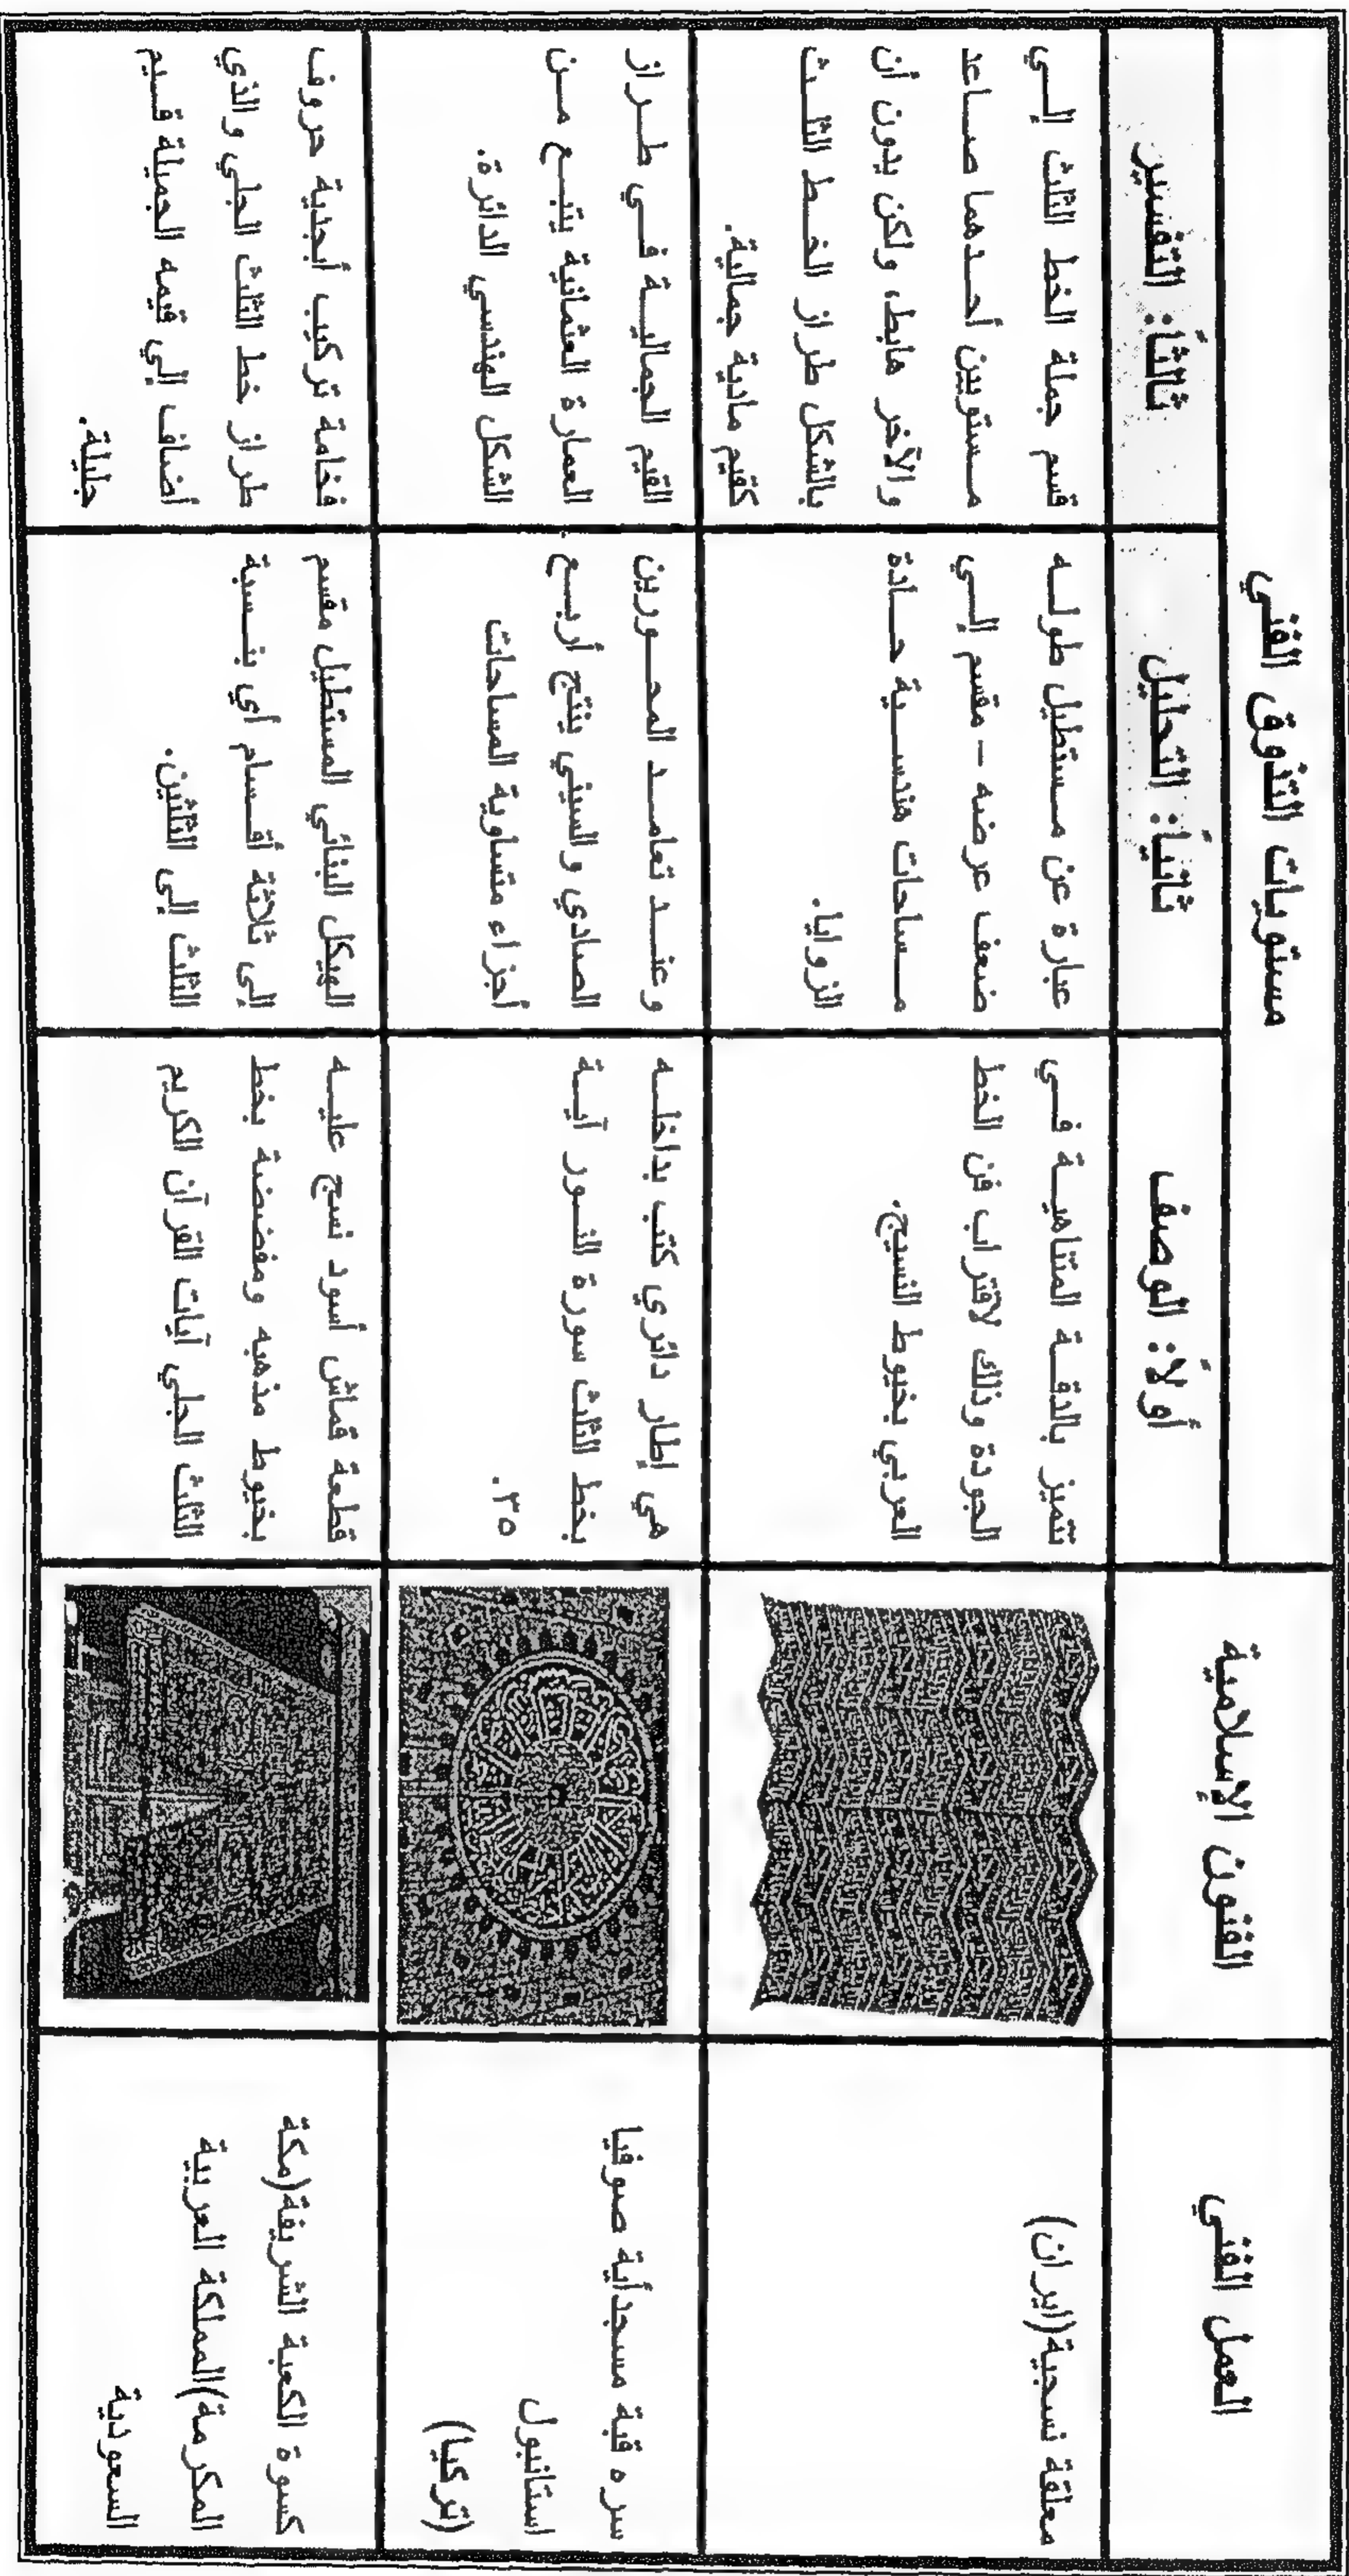 العمل الفني
الفنون الإسلامية
مستويات التذوق الفني
أولاً: الوصف
ثانياً: التحليل
ثالثاً: التفسير
معلقة نسجية(ايران)
تتميز بالدقة المتناهية في
الجودة وذلك لاقتراب فن الخط
العربي بخيوط النسيج.
عبارة عن مستطيل طوله
ضعف عرضه – مقسم إلي
مساحات هندسية حادة
الزوايا.
قسم جملة الخط الثلث إلي
مستويين أحدهما صاعد
والآخر هابط، ولكن بدون أن
بالشكل طراز الخط الثلث
كقيم مادية جمالية.
سره قبة مسجدأية صوفيا
استانبول
(تركيا)
هي إطار دائري كتب بداخله
بخط الثلث سورة النور آية
٣٥.
وعند تعامد المحورين
الصادي والسيني ينتج أربع
أجزاء متساوية المساحات
القيم الجمالية في طراز
العمارة العثمانية يتبع من
الشكل الهندسي الدائرة.
كسوة الكعبة الشريفة(مكة
المكرمة)المملكة العربية
السعودية
قطعة قماش أسود نسج عليه
بخيوط مذهبه ومفضضة بخط
الثلث الجلي آيات القرآن الكريم
الهيكل البنائي المستطيل مقسم
إلى ثلاثة أقسام أي بنسبة
الثلث إلى الثلثين.
فخامة تركيب أبجدية حروف
طراز خط الثلث الجلي والذي
أضاف إلي قيمه الجميلة قيم
جليلة.